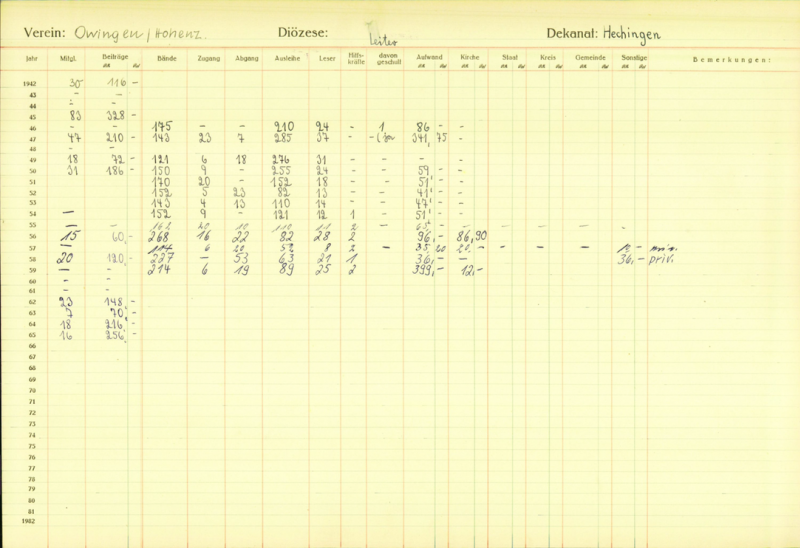 Verein: Owingen / Hohenz. Diözese: Dekanat: Hechingen
Leiter
Jahr Mitgl. Beiträge Bände Zugang Abgang Ausleihe Leser Hilfskräfte davon geschult Aufwand Kirche Staat Kreis Gemeinde Sonstige Bemerkungen:
1942 30 116 -
43 - -
44 - -
45 83 328 -
46 - - 175 - - 210 24 - 1 86 - -
47 47 210 - 143 23 7 285 37 - 341,75 -
48
49 18 72 - 121 6 18 276 31 - - - -
50 31 186 - 150 9 - 255 24 - - 59 - -
51 170 20 - 152 18 - 51 - -
52 152 5 23 82 13 - - 41 - -
53 143 4 13 110 14 - - 47 - -
54 - 152 9 - 121 12 1 - 51 - -
55 - - 162 20 10 110 11 2 - 65 - - - - - -
56 15 60,- 268 16 22 82 28 2 96,- 86,90
57 - - 6 20 52 8 2 - 35 20 20.- - - - -
58 20 120,- 227 - 53 63 21 1 36,- 36,- priv.
59 - - 214 6 19 89 25 2 399,- 12,-
60 - -
61 - -
62 23 148,-
63 7 70,-
64 18 216,-
65 16 256,-
66
67
68
69
70
71
72
73
74
75
76
77
78
79
80
81
1982